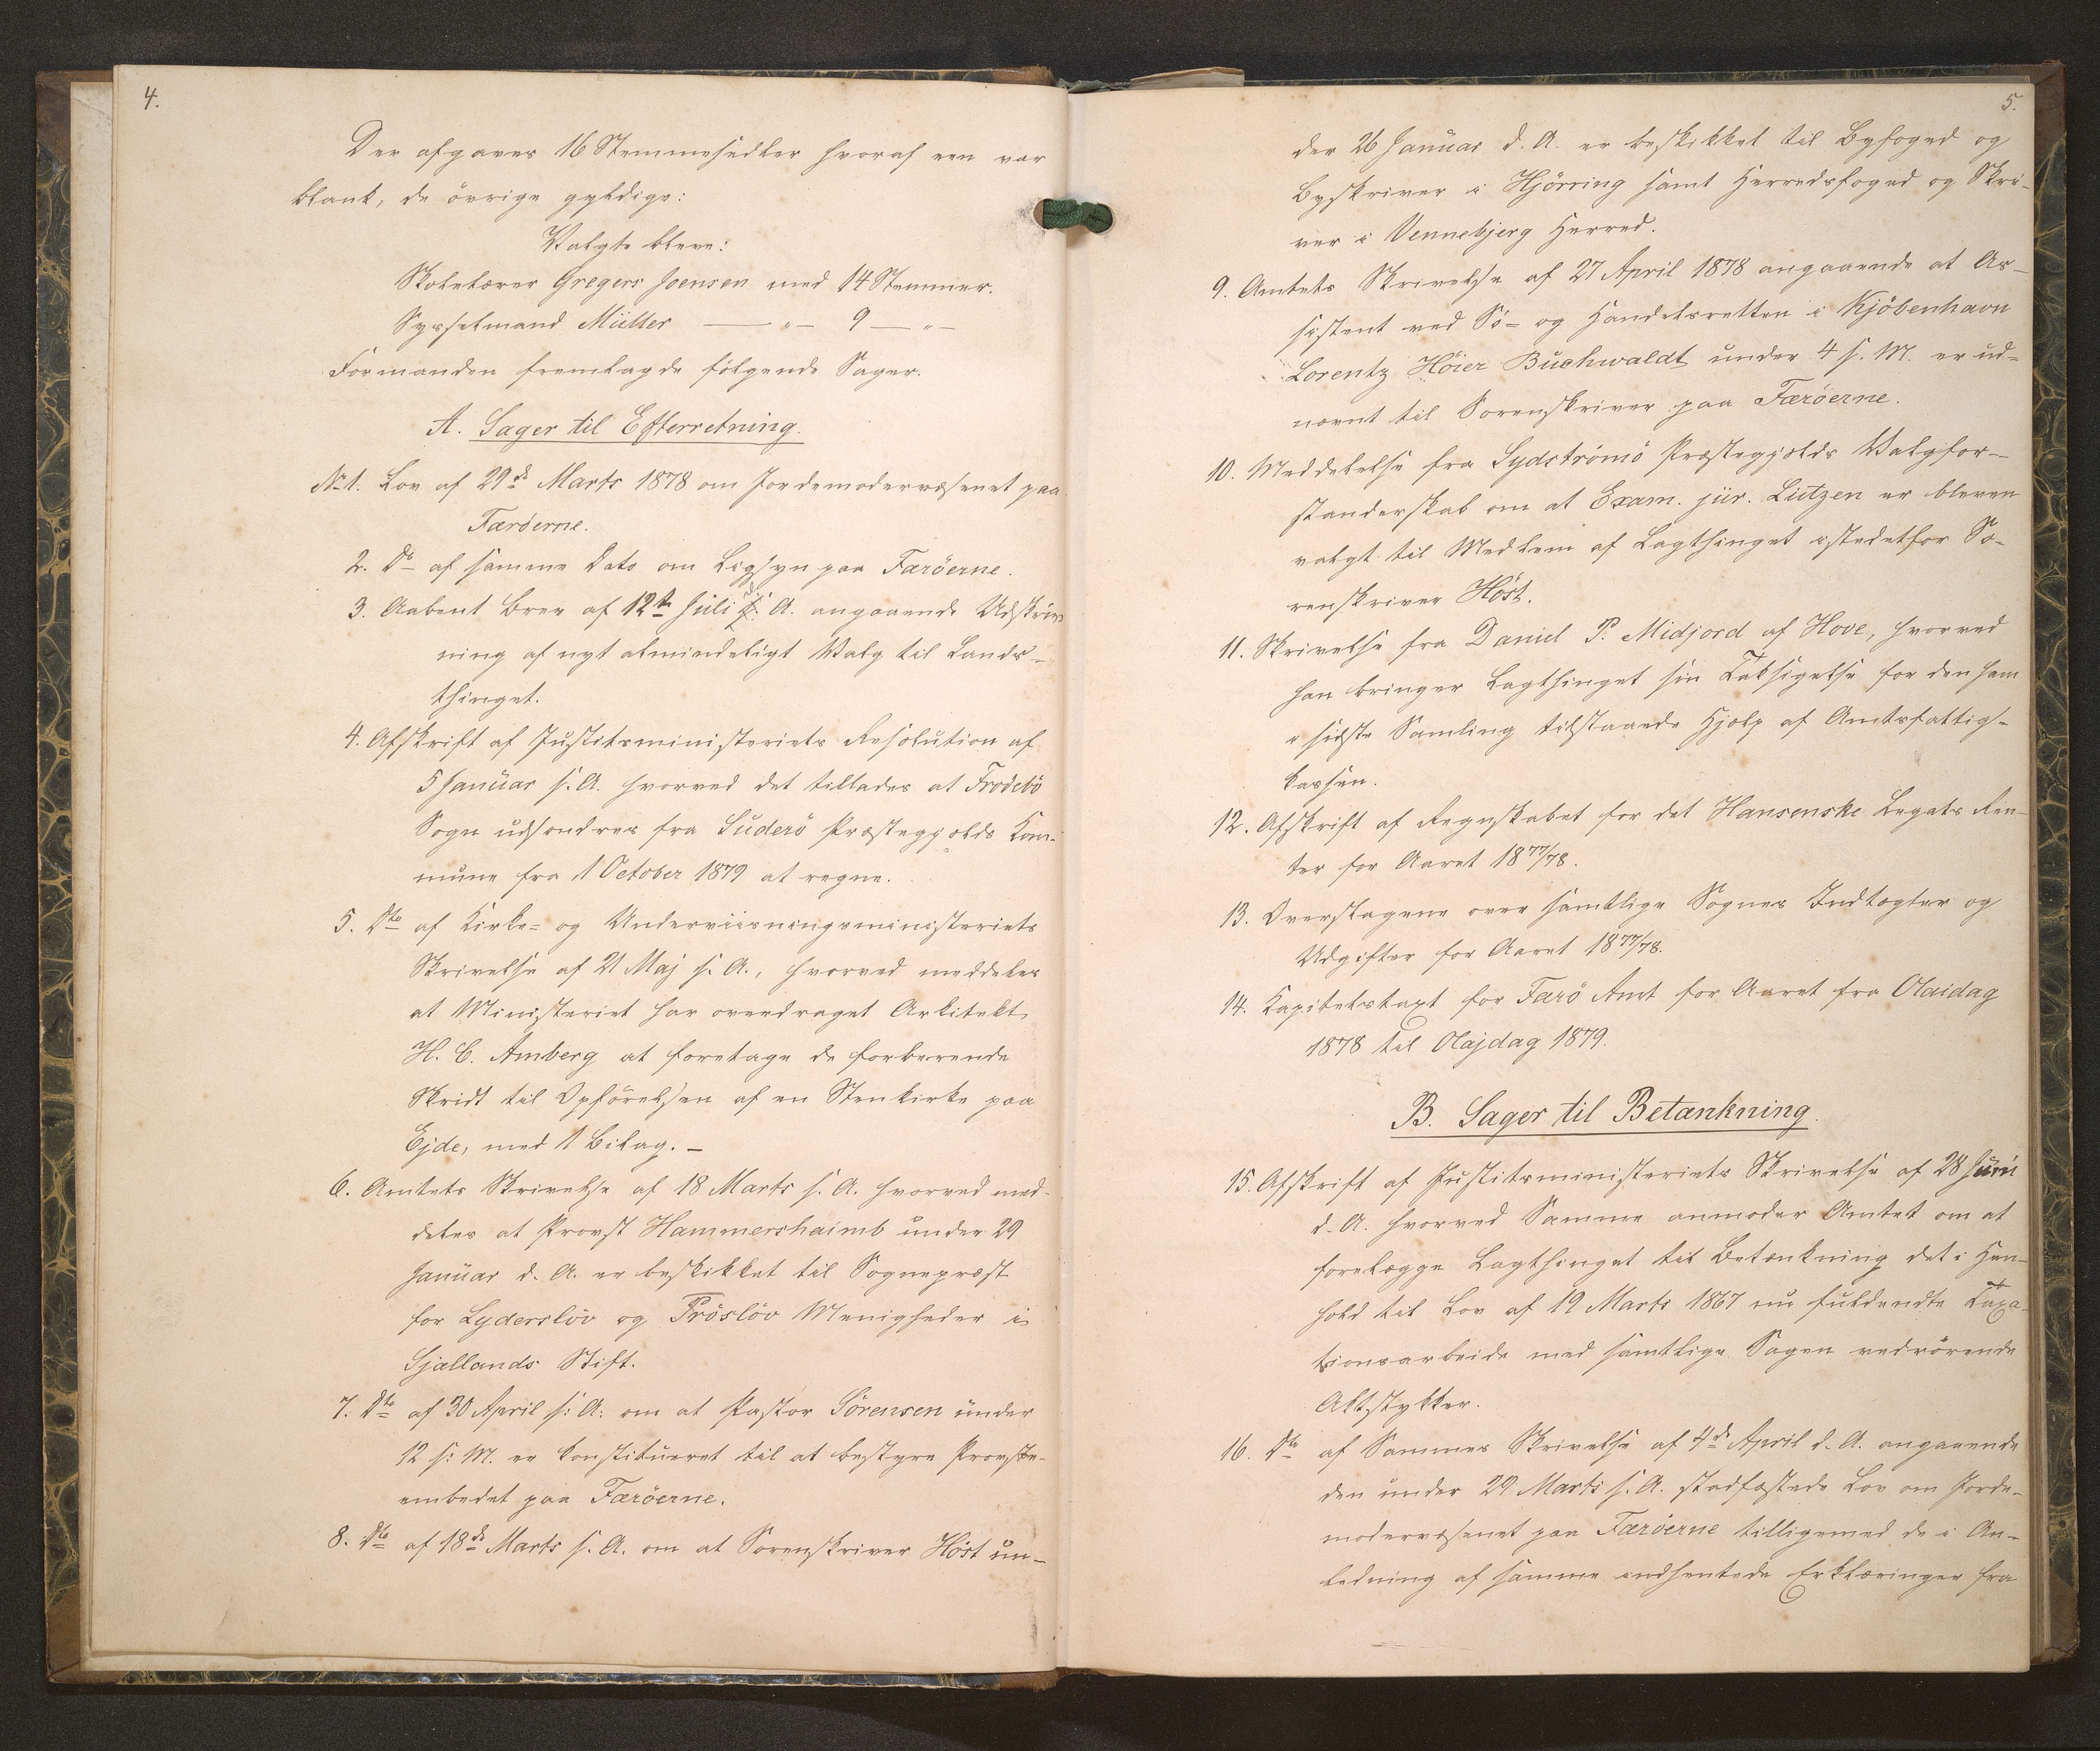 4.
Der afgaves 16 Stemmesedler hvoraf een var
blank, de övrige gyldige:
Valgte bleve:
Skolelærer Gregers Joensen med 14 Stemmer.
Sysselmand Müller —— „ — 9 — „ —
Formanden fremlagde fölgende Sager.
A. Sager til Efterretning.
No 1. Lov af 29de Marts 1878 om Jordemodervæsenet paa
Færöerne.
2. Do af samme Dato om Ligsyn paa Færöerne.
3. Aabent Brev af 12te Juli d. A. angaaende Udskriv
ning af nyt almindeligt Valg til Lands-
thinget.
4. Afskrift af Justitsministeriets Resolution af
5 Januar s. A. hvorved det tillades at Frodebö
Sogn udsondres fra Suderö Præstegjælds Kom-
mune fra 1 October 1879 at regne.
5. Dto af Kirke- og Underviisningsministeriets
Skrivelse af 21 Maj s. A., hvorved meddeles
at Ministeriet har overdraget Arkitekt
H. C. Amberg at foretage de forberende
Skridt til Opförelsen af en Stenkirke paa
Ejde, med 1 Bilag. —
6. Amtets Skrivelse af 18 Marts s. A. hvorved med-
deles at Provst Hammershaimb under 29
Januar d. A. er beskikket til Sognepræst
for Lyderslöv og Fröslöv Menigheder i
Sjællands Stift.
7. Dto af 30 April s: A. om at Pastor Sörensen under
12 s: M. er konstitueret til at bestyre Provste-
embedet paa Færöerne.
8. Dto af 18de Marts s. A. om at Sorenskriver Höst un-
5.
der 26 Januar d. A. er beskikket til Byfoged og
Byskriver i Hjörring samt Herredsfoged og Skri-
ver i Vennebjerg Herred.
9. Amtets Skrivelse af 27 April 1878 angaaende at As-
sistent ved Sö- og Handelsretten i Kjöbenhavn
Lorentz Höier Buchwaldt under 4 s. M. er ud-
nævnt til Sorenskriver paa Færöerne.
10. Meddelelse fra Sydströmö Præstegjælds Valgfor-
standerskab om at Exam. jur. Lützen er bleven
valgt til Medlem af Lagthinget istedetfor So-
renskriver Höst.
11. Skrivelse fra Daniel P. Midjord af Hove, hvorved
han bringer Lagthinget sin Taksigelse for den ham
i sidste Samling tilstaaede Hjælp af Amtsfattig-
kassen.
12. Afskrift af Regnskabet for det Hansenske Legats Ren-
ter for Aaret 1877/78.
13. Overslagene over samtlige Sognes Indtægter og
Udgifter for Aaret 1877/78.
14. Kapitelstaxt for Færö Amt for Aaret fra Olaidag
1878 til Olajdag 1879.
B. Sager til Betænkning.
15. Afskrift af Justitsministeriets Skrivelse af 28 Juni
d. A. hvorved Samme anmoder Amtet om at
forelægge Lagthinget til Betænkning det i Hen-
hold til Lov af 19 Marts 1867 nu fuldendte Taxa-
tionsarbeide med samtlige Sagen vedrörende
Aktstykker.
16. Dto af Sammes Skrivelse af 4de April d. A. angaaende
den under 29 Marts s. A. stadfæstede Lov om Jorde-
modervæsenet paa Færöerne tilligemed de i An-
ledning af samme indhentede Erklæringer fra